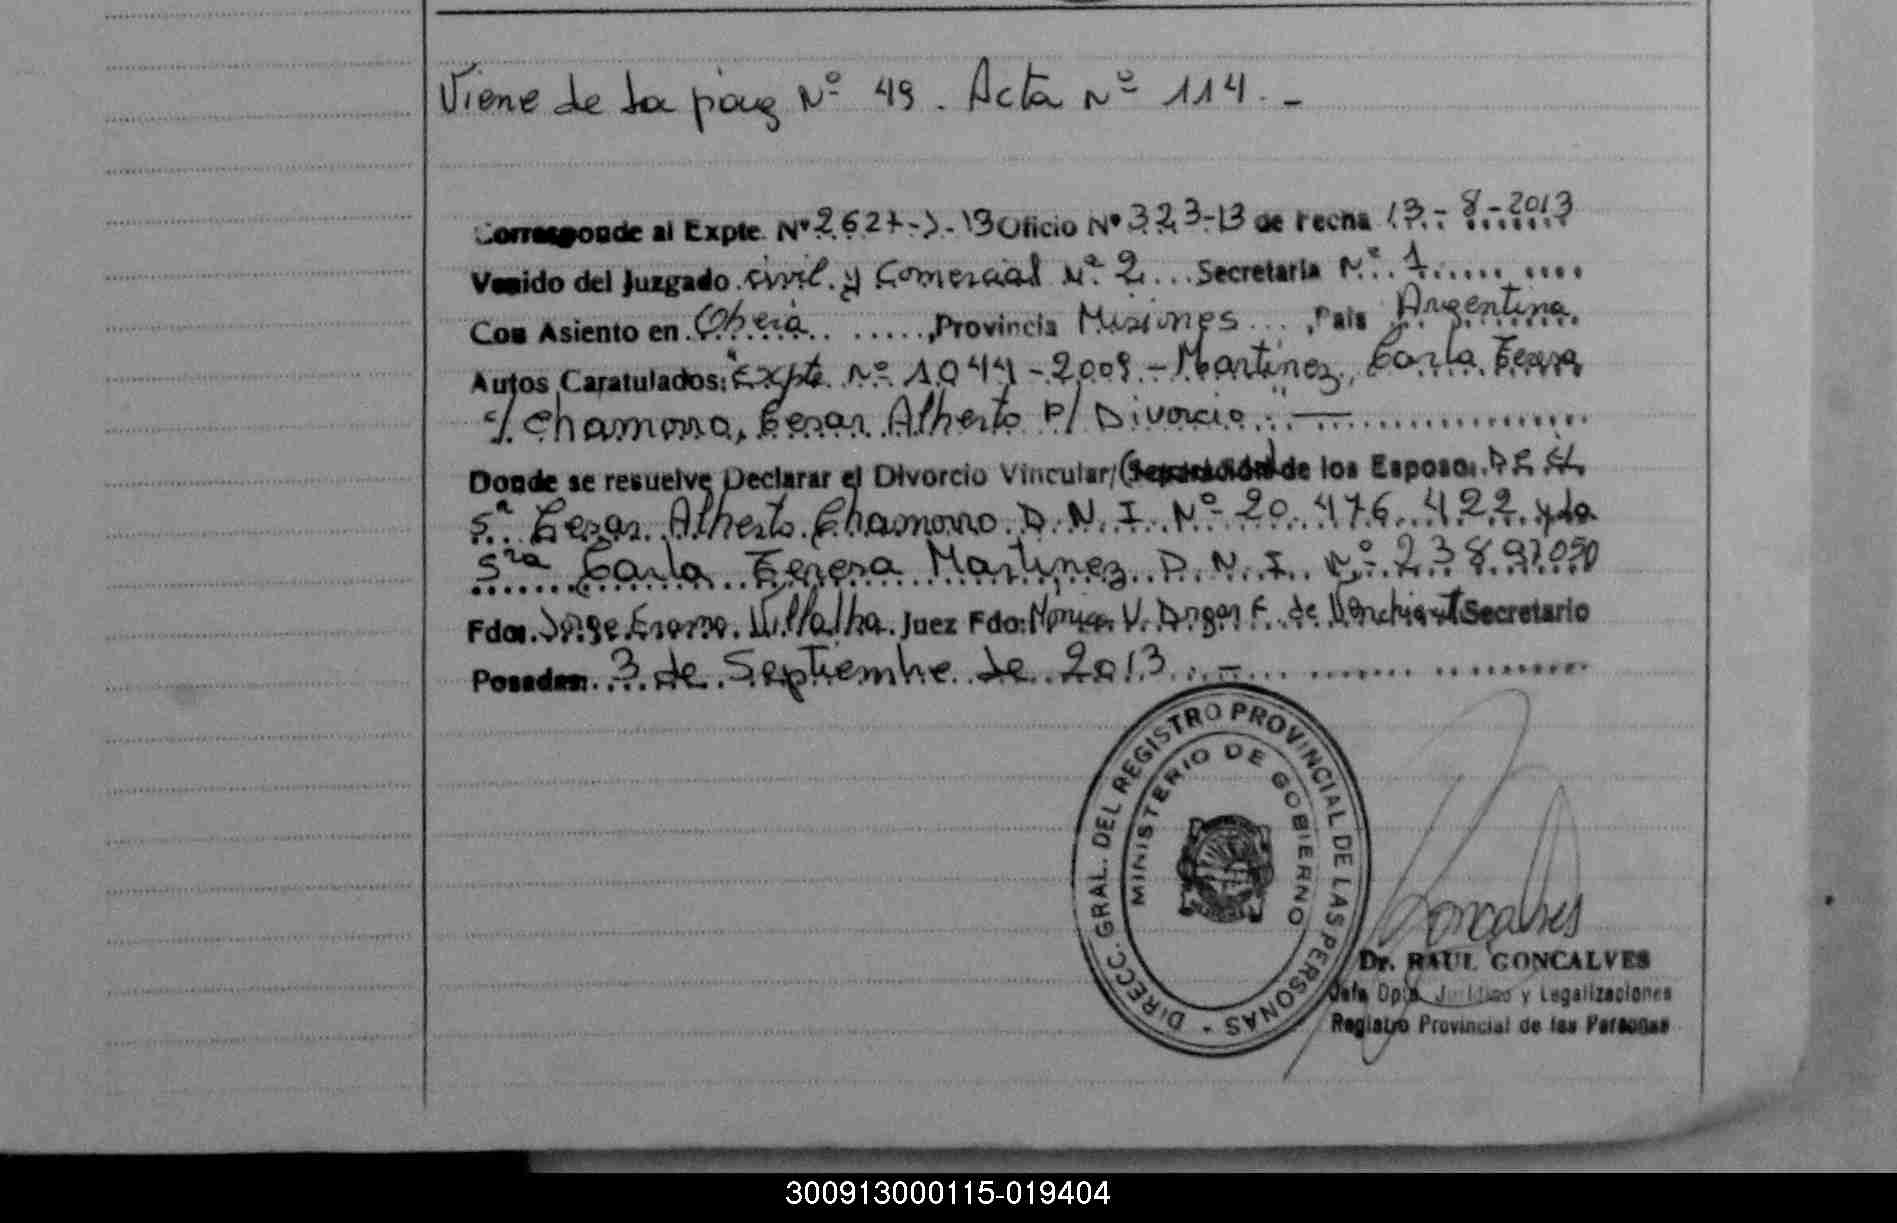 Viene de la pag Nº 49. Acta Nº 114. -
Corresponde al Expte. Nº 2627-J-13 Oficio Nº 323-13 de Fecha 13-8-2013
Venido del Juzgado civil y Comercial Nº 2 Secretaria Nº 1
Con Asiento en Oberá, Provincia Misiones, Pais Argentina.
Autos Caratulados: "Expte Nº 1044-2009 - Martinez, Carla Teresa
c/ Chamorro, Cesar Alberto P/ Divorcio". —
Donde se resuelve Declarar el Divorcio Vincular/(Separación) de los Esposos. DEL
Sr. Cesar Alberto Chamorro D.N.I. Nº 20.476.422 y la
Sra Carla Teresa Martinez D.N.I. Nº 23.897.050
Fdo. Jorge Erasmo Villalba. Juez Fdo: Monica V. Drganc F. de Secretario
Posadas: 3 de Septiembre de 2013. -
DIRECC. GRAL. DEL REGISTRO PROVINCIAL DE LAS PERSONAS -
MINISTERIO DE GOBIERNO
Goncalves
Dr. RAUL GONCALVES
Jefe Dpto. Jurídico y Legalizaciones
Registro Provincial de las Personas
300913000115-019404